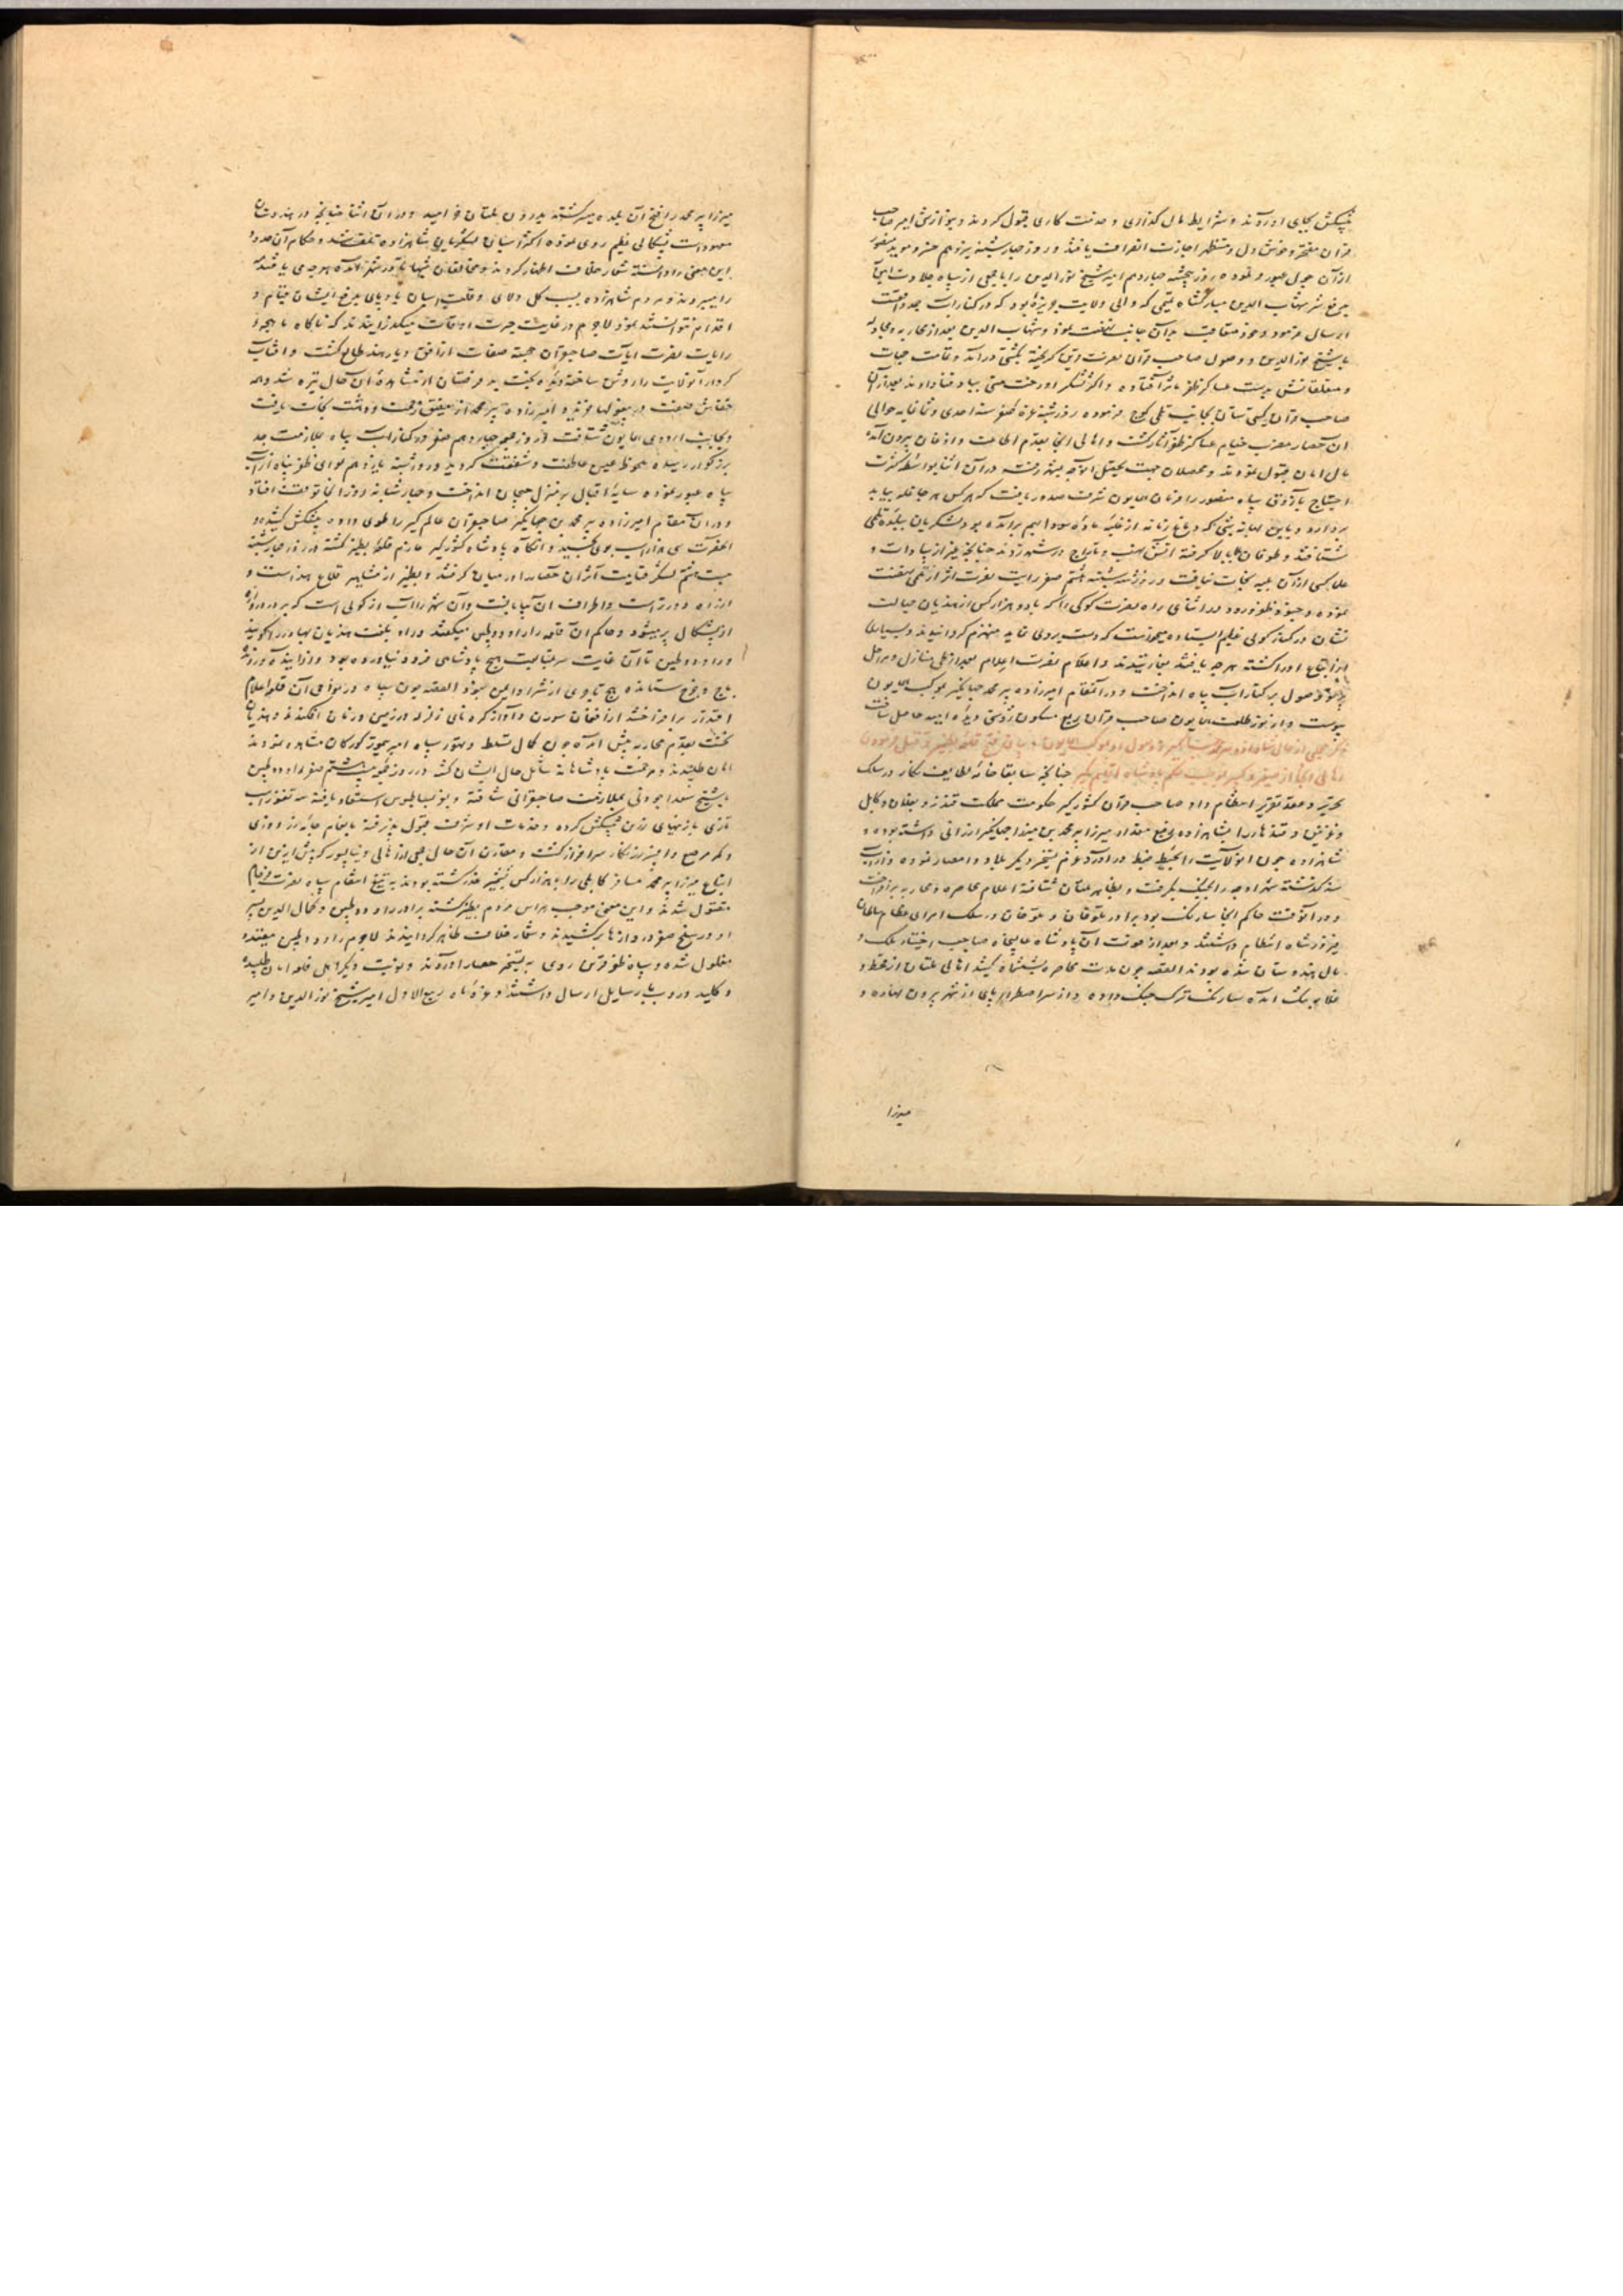 پیشکش بجای آوردند و شرایط مال گذاری و خدمت کاری قبول کردند و بنوازش امیر صاحب
قران مفتخر و خوش دل و مستظهر اجازت انصراف یافتند و روز چهارشنبه سیزدهم خسرو مؤید منصور
از آن جول عبور فرموده روز پنجشنبه چهاردهم امیر شیخ نورالدین را با جمعی از سپاه جلادت
شهاب الدین مبارکشاه تمیمی که والی ولایت جزیره بود که در کنار آب جمد واقعست
ارسال فرمود و خود متعاقب بدان جانب نهضت نمود و شهاب الدین بعد از محاربه و مجادله
با شیخ نورالدین و وصول صاحب قران نصرت آیین گریخته بکشتی درآمد و قامت حیات
و متعلقانش بدست عساکر ظفر مآثر افتاده و اکثر لشکر او رخت هستی بباد فنا دادند بعد از آن
صاحب قران کیتی ستان بجانب تلمی کوچ فرموده روز شنبه غره صفر سنه احدی و ثمانمایه حوالی
آن حصار مضرب خیام عساکر ظفر آثار گشت و اهالی آنجا بقدم اطاعت و اذعان بیرون آمده
مال امان قبول نمودند و محصلان جهت تحصیل آن وجه بشهر رفته در آن اثنا بواسطه کثرت
احتیاج بآزوق سپاه منصور را فرمان همایون شرف صدور یافت که هرکس هر جا غله بیابد
بردارد و باین بهانه شبی که دماغ زمانه از غلبه ماده سودا بهم برآمده بود لشکریان ببلده تلمی
شتافتند و طوفان بلا بالا گرفته آتش نهب و تاراج در شهر زدند چنانچه غیر از سادات و
علما کسی از آن بلیه نجات نیافت و روز شنبه هشتم صفر رایت نصرت اثر از تلمی نهضت
نموده و جنود ظفر ورود در اثنای راه نصرت کوکری را که با دو هزار کس از هندیان جهالت
نشان در کنار کولی عظیم ایستاده میخواست که دست بردی نماید منهزم گردانیدند و بسیاری
از اتباع او را کشته هرچه یافتند بغارتیدند و اعلام نصرت اعلام بعد از طی منازل و مراحل
پرتو وصول بر کنار آب بیاه انداخت و در آن مقام امیرزاده پیر محمد جهانگیر بموکب همایون
پیوست و از نور طلعت همایون صاحب قران ربع مسکون روشنی دیده امید حاصل ساخت
ذکر مجملی از حال شاهزاده پیر محمد جهانگیر و وصول او بموکب همایون و بیان فتح قلعه بطنیر و قتل فرمودن
اهالی آنجا از صغیر و کبیر بموجب حکم پادشاه اقلیم گیر چنانچه سابقا خامه لطایف نگار در سلک
تحریر و عقد تقریر انتظام داد صاحب قران کشورگیر حکومت مملکت قندز و بغلان و کابل
و غزنین و قندهار را بشاهزاده رفیع مقدار میرزا پیر محمد بن میرزا جهانگیر ارزانی داشته بود و
شاهزاده چون آن ولایت را بحیطه ضبط درآورد عزم تسخیر دیگر بلاد و امصار نموده و از آب
سند گذشته شهر اوچه را بجنگ بگرفت و بظاهر ملتان شتافته اعلام محاصره و محاربه برافراخت
و در آن وقت حاکم آنجا سارنگ بود برادر ملوخان و ملوخان در سلک امرای عظام سلطان
فیروز شاه انتظام داشتند و بعد از فوت آن پادشاه عالیجاه صاحب اختیار ملک و
مال هندوستان شده بودند القصه چون مدت محاصره بششماه کشید اهالی ملتان از قحط و
غلا به تنگ آمده سارنگ ترک جنگ داده و از سر اضطرار پای از شهر بیرون نهاده و
میرزا
میرزا پیر محمد را فتح آن بلده میسر گشته بدرون ملتان خرامید و در آن اثنا چنانچه در هندوستان
معهودست بشکالی عظیم روی نموده اکثر اسبان لشکریان شاهزاده تلف شد و حکام آن حدود
این معنی را دانسته شعار خلاف اظهار کردند و مخالفان شبها تا در شهر آمده هرچه می یافتند
را میبردند و مردم شاهزاده بسبب گل و لای و قلت اسبان بادپای بدفع ایشان قیام و
اقدام نتوانستند نمود لاجرم در غایت حیرت اوقات میگذرانیدند که ناگاه ماهچه
رایات نصرت آیات صاحبقران خجسته صفات از افق دیار هند طالع گشت و آفتاب
کردار آن ولایت را روشن ساخته دیده بخت بدفرصتان از مشاهده آن حال تیره شد و همه
خفاش صفت در سوراخها خزیدند و امیرزاده پیر محمد از مضیق زحمت و وحشت نجات یافت
و بجانب اردوی همایون شتافت و روز جمعه چهاردهم صفر در کنار آب بیاه بملازمت جد
بزرگوار رسیده ملحوظ عین عاطفت و شفقت گردید و روز شنبه پانزدهم لوای ظفر پناه از آب
بیاه عبور نموده سایه اقبال بر منزل جنجان انداخت و چهار شبانه روز آنجا توقف افتاد
و در آن مقام امیرزاده پیر محمد بن جهانگیر صاحبقران عالم گیر را طوی داده پیشکش کشید و
آنحضرت سی هزار اسب بوی بخشید و آنگاه پادشاه کشورگیر عازم قلعه بطنیر گشته در روز چهارشنبه
لشکر قیامت اثر آن حصار را در میان گرفتند و بطنیر از مشاهیر قلاع هند است و
از راه دور است و اطراف آن بیابانست و آن شهر را آب از کولی است که بر در دروازه
از بشکال پر میشود و حاکم آن قلعه را راو دولچین میگفتند و راو بلغت هندیان بهادر را گویند
و راو دولچین تا آن غایت سر بمتابعت هیچ پادشاهی فرود نیاورده بود و از آینده و رونده
باج و خرج ستانده هیچ تاجری از شر او ایمن نبود القصه چون سپاه در نواحی آن قلعه اعلام
اقتدار برافراختند از افغان سورن و آواز کره نای زلزله در زمین و زمان افکندند و هندیان
نخست بقدم محاربه پیش آمده چون کمال تسلط و تهور سپاه امیر تیمور گورکان مشاهده نمودند
امان طلبیدند و مرحمت پادشاهانه شامل حال ایشان گشته در روز جمعه بیست هشتم صفر راو دولچین
با شیخ سعد اجودنی بملازمت صاحبقرانی شتافته و بعز بساطبوس استسعاد یافته سه تغوز اسب
تازی با زینهای زرین پیشکش کرده و خدمات او شرف قبول پذیرفته بانعام جامه زردوزی
و کمر مرصع و افسر زرنگار سرافراز گشت و مقارن آن حال جمعی از اهالی دیبالپور که پیش ازین از
اتباع میرزا پیر محمد مسافر کابلی را با هزار کس بخنجر غدر کشته بودند به تیغ انتقام سپاه نصرت فرجام
مقتول شدند و این معنی موجب هراس مردم بطنیر گشته برادر راو دولچین و کمال الدین پسر
او در سلخ صفر دروازها برکشیدند و شعار خلاف ظاهر گردانیدند لاجرم راو دولچین مقید و
مغلول شده و سپاه ظفر قرین روی به تسخیر حصار آوردند و نوبت دیگر اهل قلعه امان طلبیده
و کلید دروب با رسایل ارسال داشتند و غره ماه ربیع الاول امیر شیخ نورالدین و امیر